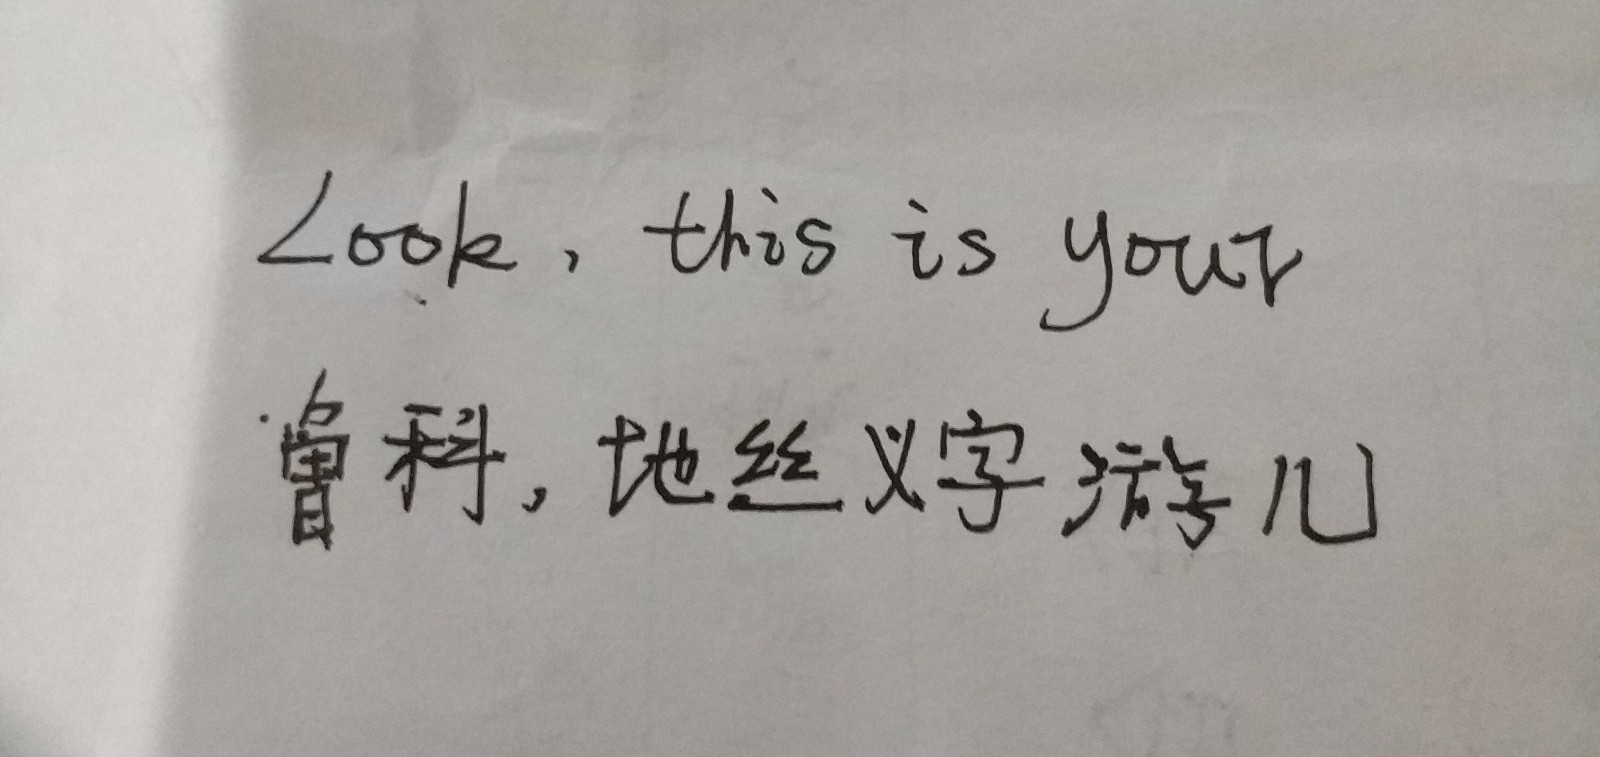 Look, this is your
鲁科,地丝义字游儿